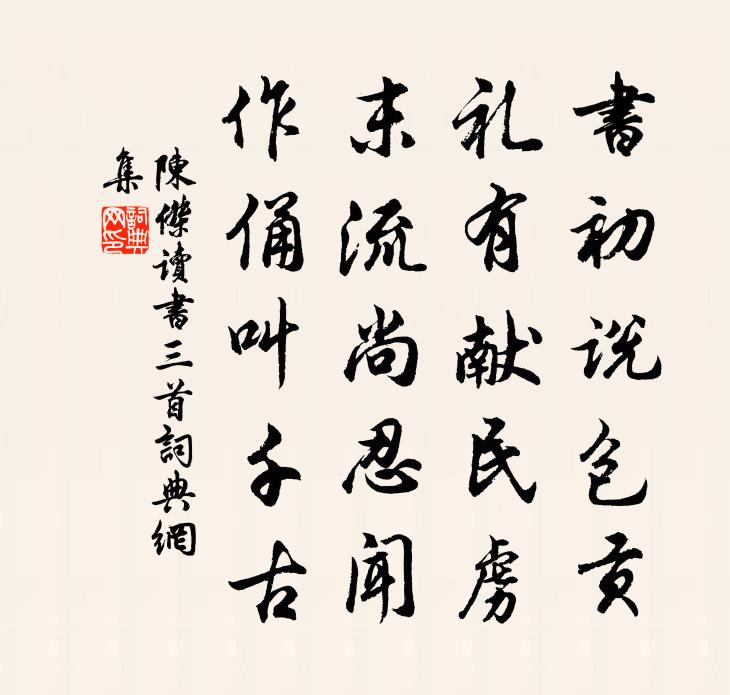 書初説包贡
礼有献民虏
末流尚忍闻
作俑叫千古
陳傑讀書三首詞典網
集
詞典
网印